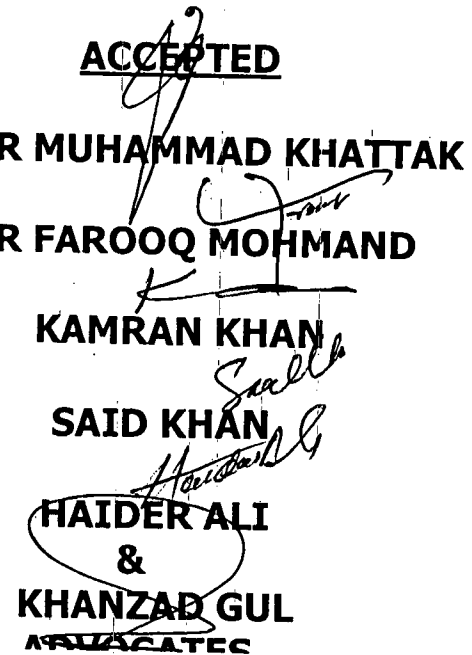 ACCEPTED
R MUHAMMAD KHATTAK
R FAROOQ MOHMAND
KAMRAN KHAN
SAID KHAN
HAIDER ALI
&
KHANZAD GUL
ADVOCATES